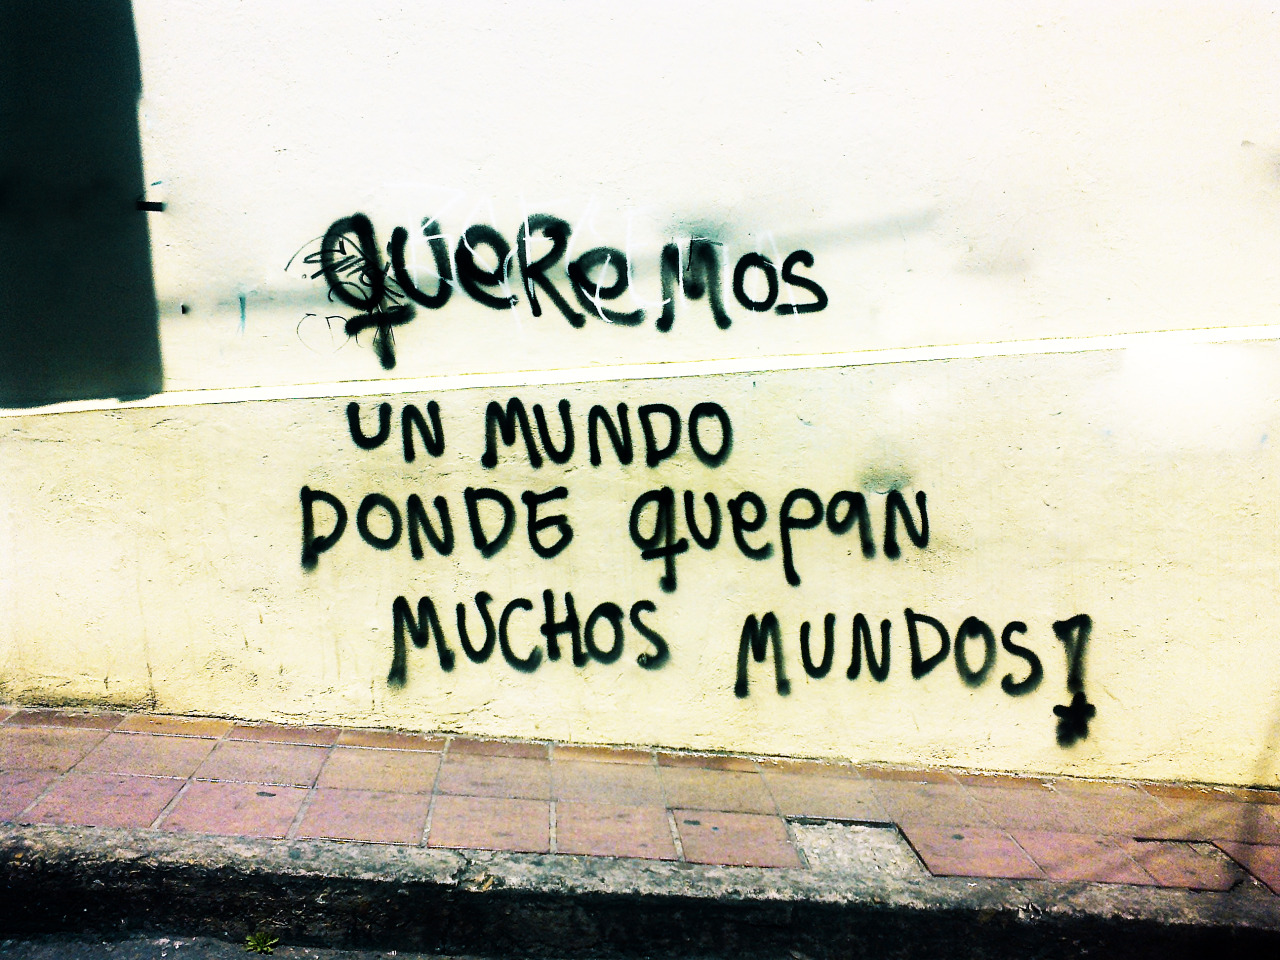 QUeReMos
UN MUNDO
DONDE QUePAN
MUCHOS MUNDOS!